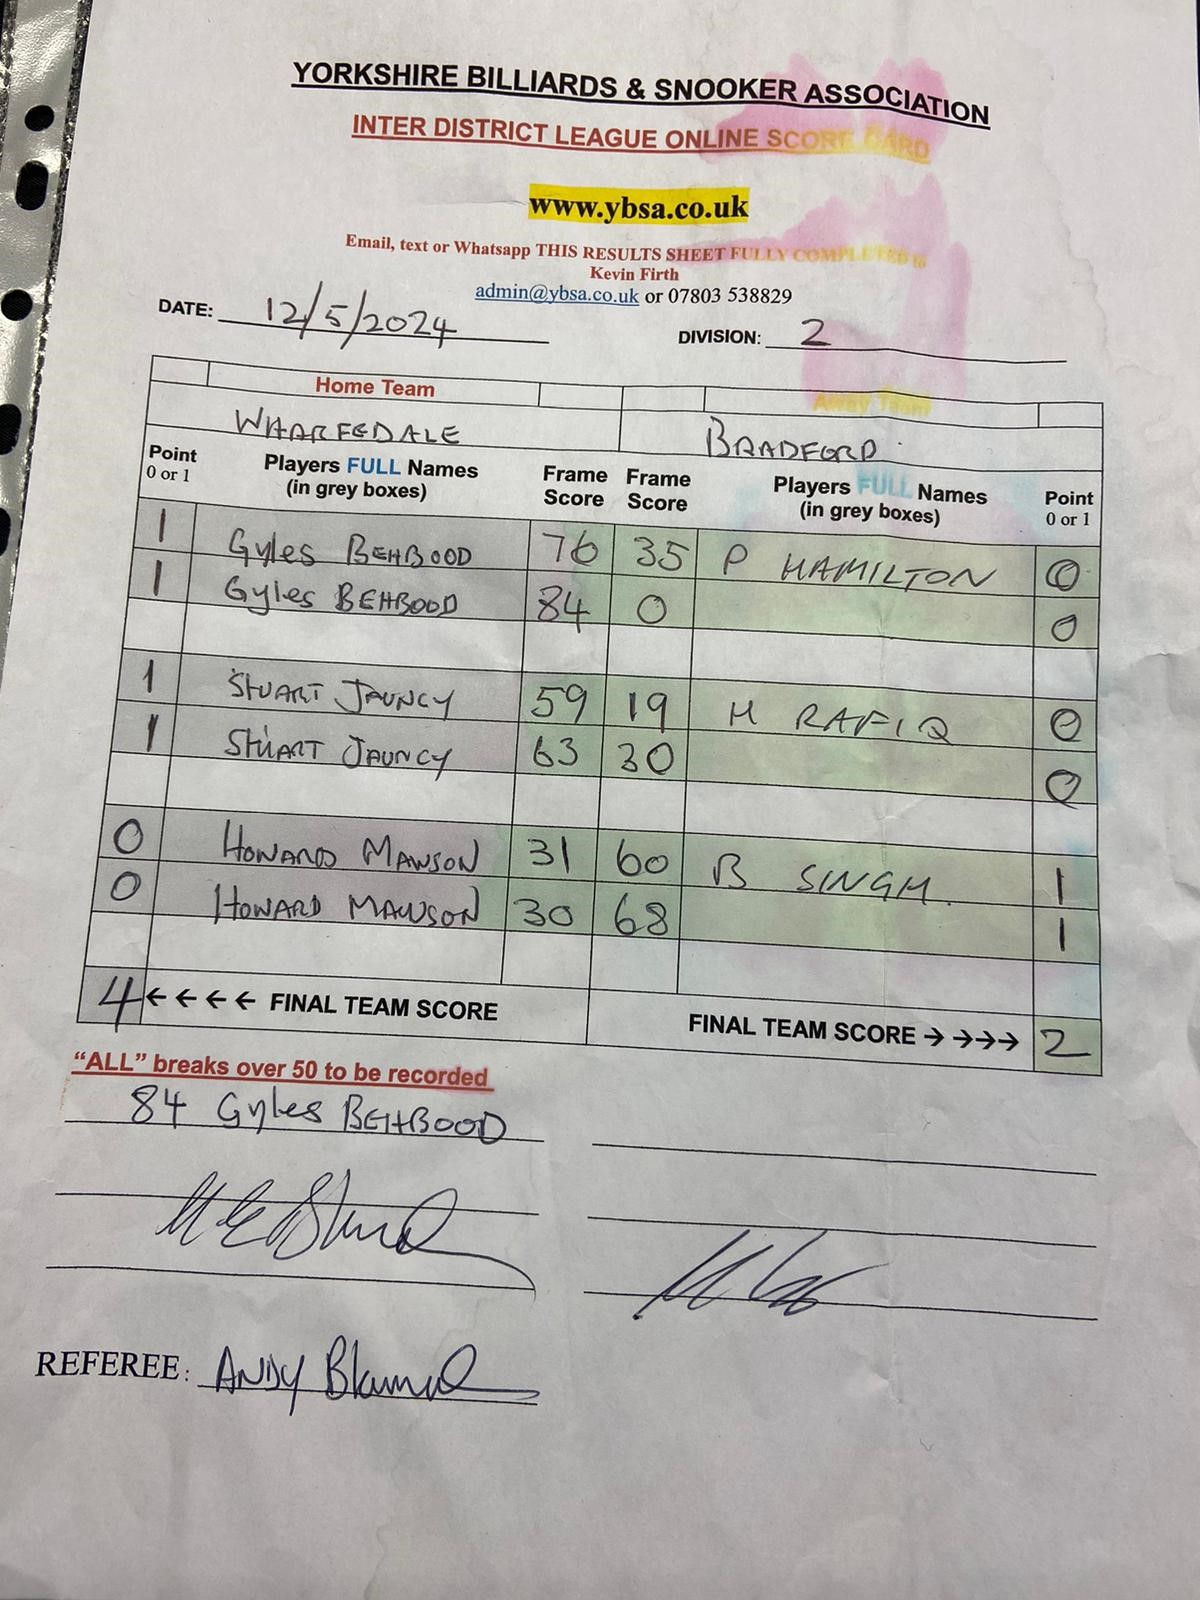 YORKSHIRE BILLIARDS & SNOOKER ASSOCIATION
INTER DISTRICT LEAGUE ONLINE SCORE CARD
www.ybsa.co.uk
Email, text or Whatsapp THIS RESULTS SHEET FULLY COMPLETED to
Kevin Firth
admin@ybsa.co.uk or 07803 538829
DATE: 12/5/2024 DIVISION: 2
Home Team Away Team
WHARFEDALE BRADFORD
Point 0 or 1 Players FULL Names (in grey boxes) Frame Score Frame Score Players FULL Names (in grey boxes) Point 0 or 1
1 Gyles BEHBOOD 76 35 P HAMILTON 0
1 Gyles BEHBOOD 84 0 0
1 STUART JAUNCY 59 19 M RAFIQ 0
1 STUART JAUNCY 63 30 0
0 HOWARD MAWSON 31 60 B SINGH. 1
0 HOWARD MAWSON 30 68 1
4 ←←←← FINAL TEAM SCORE FINAL TEAM SCORE →→→→ 2
“ALL” breaks over 50 to be recorded
84 Gyles BEHBOOD
REFEREE: ANDY